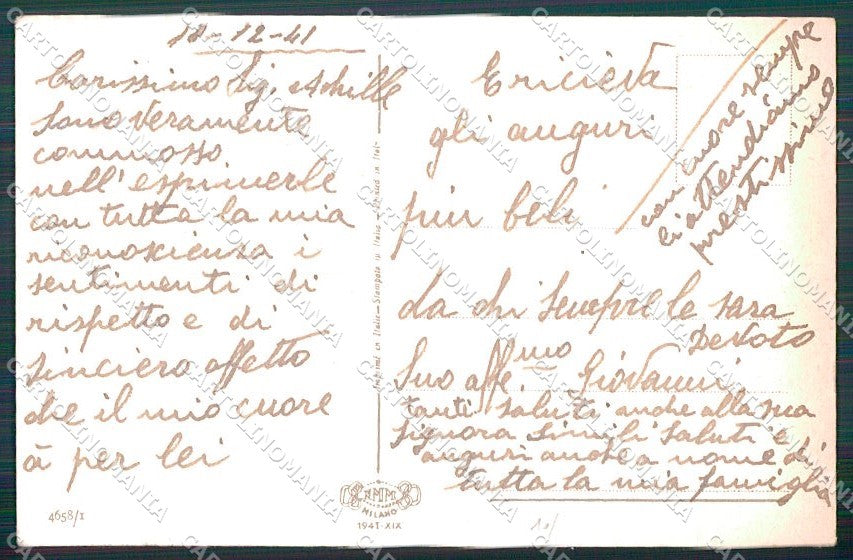 18-12-41
Carissimo Sig. Achille
sono veramente
commosso
nell'esprimerle
con tutta la mia
riconoscienza i
sentimenti di
rispetto e di
sinciero affetto
che il mio cuore
à per lei
4658/1
Ericieva
gli auguri
piu beli
da chi sempre le sara
Devoto
Suo affe.mo Giovanni
tanti saluti anche alla sua
signora simili saluti e
auguri anche a nome di
tutta la mia famiglia
con cuore sempre
li attendiamo
prestissimo
MILANO
1941-XIX
CARTOLINOMANIA